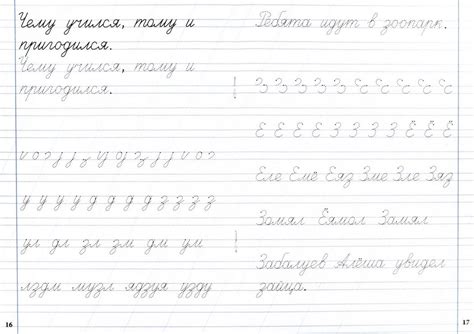 Чему учился, тому и
пригодился.
Чему учился, тому и
пригодился.
у у у у д д д д з з з з
ул дл зл зм дм ум
лзди музл ядзуя узду
16
Ребята идут в зоопарк.
З З З З З З
Е Е Е Е З З З З Ё Ё Ё
Еле Емё Еяз Зме Зле Зяз
Зомял Ёямол Замял
Забалуев Алёша увидел
зайца.
17